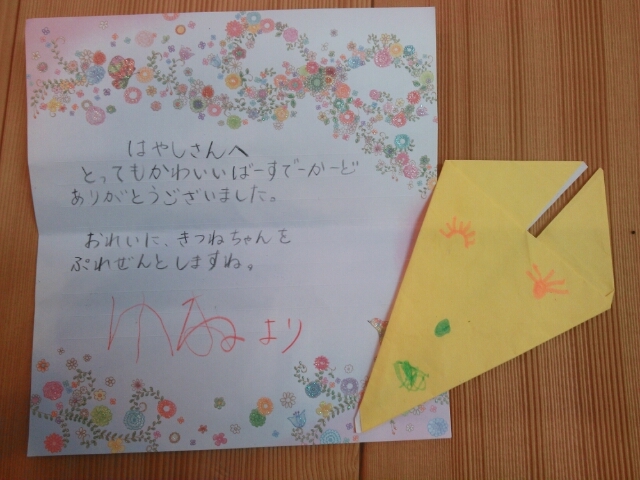 はやしさんへ
とってもかわいいばーすでーかーど
ありがとうございました。
おれいに、きつねちゃんを
ぷれぜんとしますね。
より